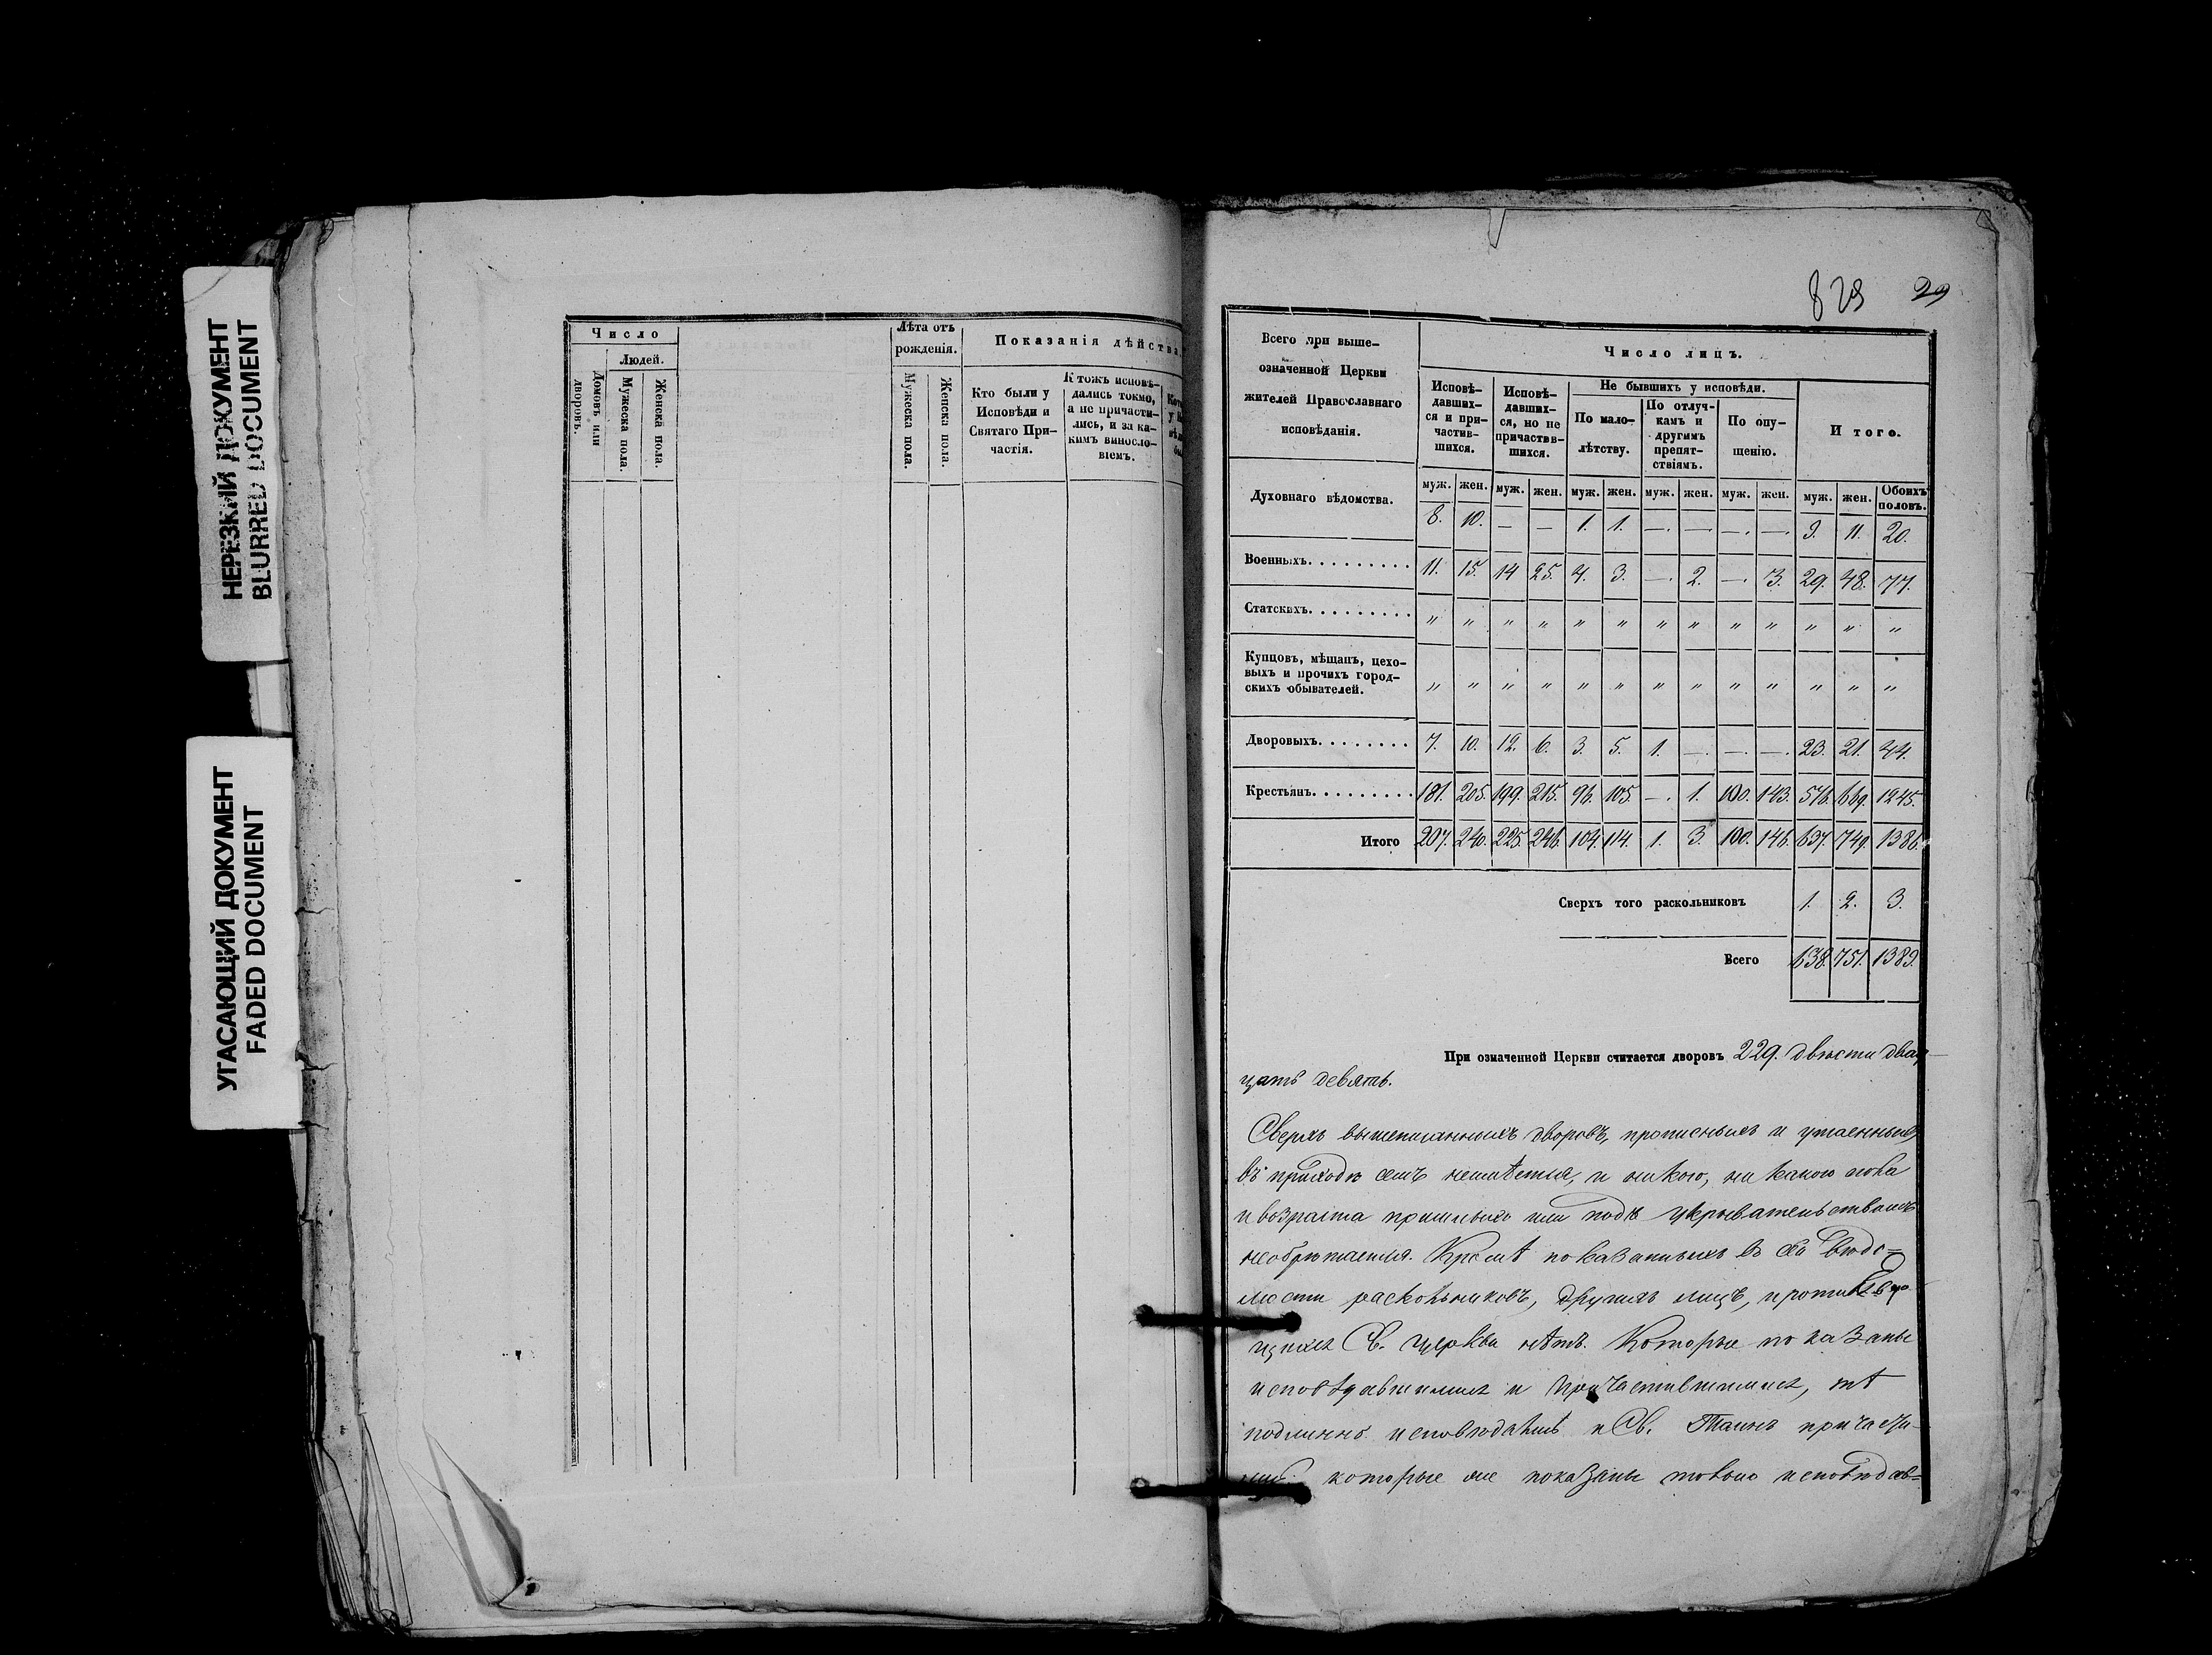 НЕРЕЗКИЙ ДОКУМЕНТ
BLURRED DOCUMENT
УГАСАЮЩИЙ ДОКУМЕНТ
FADED DOCUMENT
Число
Людей.
Домовъ или дворовъ.
Мужеска пола.
Женска пола.
Лѣта отъ рожденія.
Мужеска пола.
Женска пола.
Показанія дѣйства
Кто были у Исповѣди и Святаго Причастія.
Ктожъ исповѣдались токмо, а не причастились, и за какимъ винословіемъ.
829 29
Всего при вышеозначенной Церкви жителей Православнаго исповѣданія.
Число лицъ.
Исповѣдавшихся и причастившихся.
Исповѣдавшихся, но не причастившихся.
Не бывшихъ у исповѣди.
По малолѣтству.
По отлучкамъ и другимъ препятствіямъ.
По опущенію.
Итого.
муж. жен. муж. жен. муж. жен. муж. жен. муж. жен. муж. жен. Обоихъ половъ.
Духовнаго вѣдомства. 8. 10. — — 1. 1. —. —. —. —. 9. 11. 20.
Военныхъ. 11. 15. 14 25. 4. 3. —. 2. —. 3. 29. 48. 77.
Статскихъ. " " " " " " " " " " " " "
Купцовъ, мѣщанъ, цеховыхъ и прочихъ городскихъ обывателей. " " " " " " " " " " " " "
Дворовыхъ. 7. 10. 12. 6. 3. 5. 1. —. —. —. 23. 21. 44.
Крестьянъ. 181. 205. 199. 215. 96. 105. —. 1. 100. 143. 576. 669. 1245.
Итого 207. 240. 225. 246. 104. 114. 1. 3. 100. 146. 637. 749. 1386.
Сверхъ того раскольниковъ 1. 2. 3.
Всего 638. 751. 1389.
При означенной Церкви считается дворовъ 229. двѣсти двад-
цать девять.
Сверхъ вышеписанныхъ дворовъ, прописныхъ и утаенныхъ
въ приходѣ семъ неимѣется, и никого, ни какого пола
и возраста пришлыхъ или подъ укрывательствомъ
необрѣтается. Кромѣ показанныхъ въ сей вѣдо=
мости раскольниковъ, другихъ лицъ,
Св. Церкви нѣтъ. Которые показаны
исповѣдавшимися и причастившимися, тѣ
подлинно исповѣдались и Св. Таинъ причасти-
лись, которые же показаны только исповѣдав=